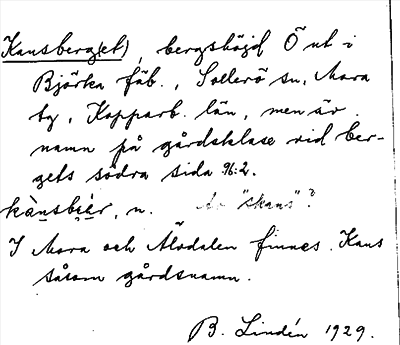 Kansberg(et), bergshöjd Ö ut i
Björka fäb., Sollerö sn, Mora
tg, Kopparb. län, men är
namn på gårdsklase vid ber-
gets södra sida 96:2.
känsbjär, n. Av "skans"?
I Mora och Älvdalen finnes Kans
såsom gårdsnamn.
B. Lindén 1929.